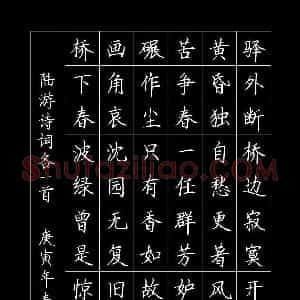 驿外断桥边寂寞开
黄昏独自愁更着风
苦争春一任群芳妒
碾作尘只有香如故
画角哀沈园无复旧
桥下春波绿曾是惊
陆游诗词各一首 庚寅年春
Shufaziliao.com